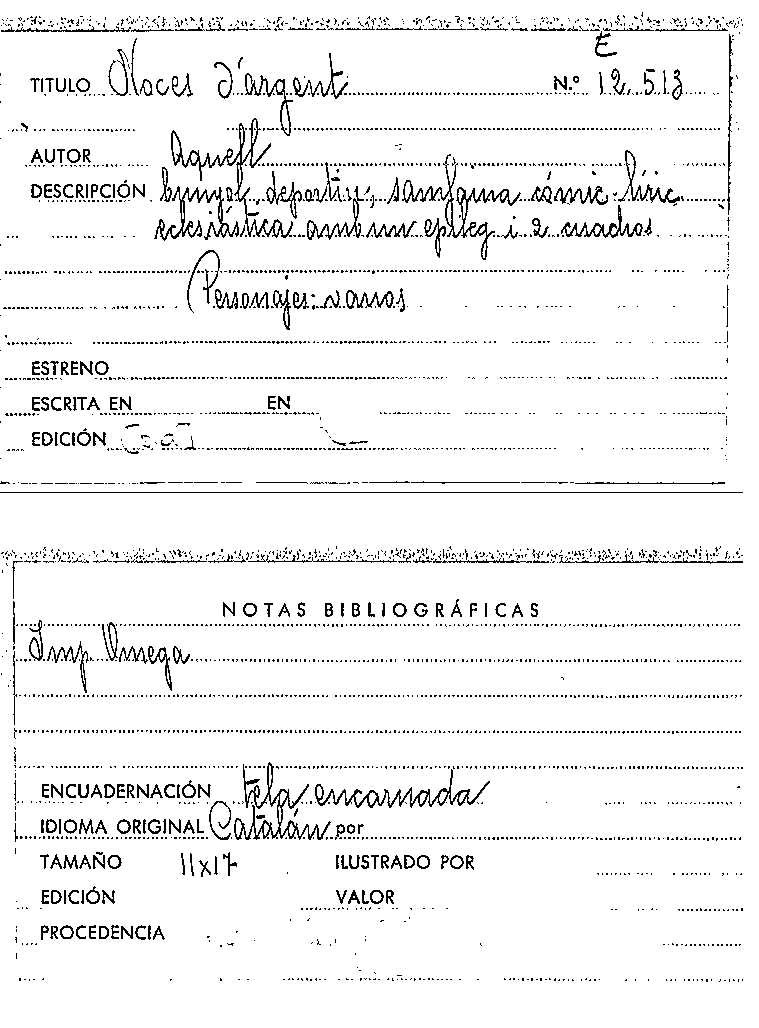 E
TITULO Noces d'argent N.º 12.513
AUTOR Aquell
DESCRIPCIÓN bunyol, deportiu, samfaina cómic-líric
eclesiástica amb un epíleg i 2 cuadros
Personajes: varios
ESTRENO
ESCRITA EN EN
EDICIÓN [s.a.]
NOTAS BIBLIOGRÁFICAS
Imp Omega
ENCUADERNACIÓN tela encarnada
IDIOMA ORIGINAL Catalán por
TAMAÑO 11x17 ILUSTRADO POR
EDICIÓN VALOR
PROCEDENCIA